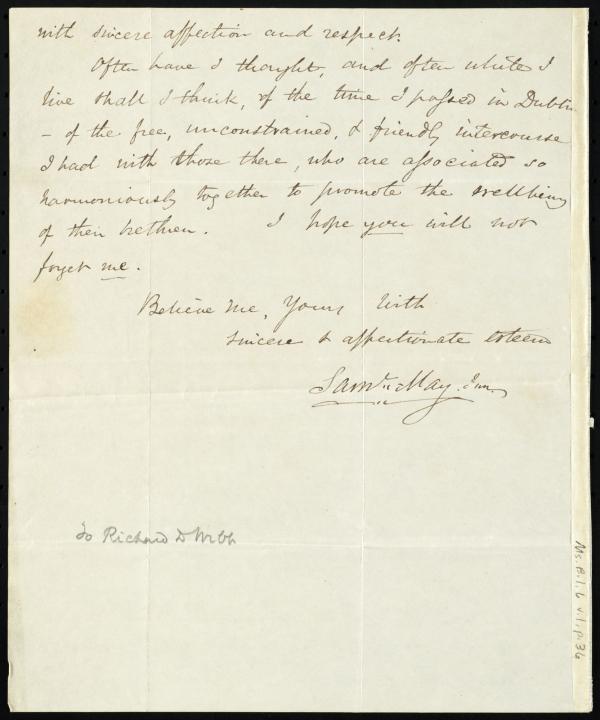 with sincere affection and respect.
Often have I thought, and often while I
live shall I think, of the time I passed in Dublin
- of the free, unconstrained, & friendly intercourse
I had with those there, who are associated so
harmoniously together to promote the wellbeing
of their brethren. I hope you will not
forget me.
Believe me, Yours with
sincere & affectionate esteem
Saml. May. Jun.
To Richard D Webb
Ms. B.1.6 v.1, p.36